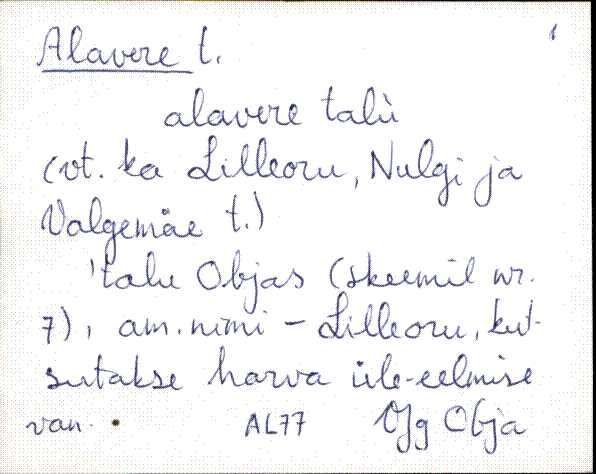 Alavere t.
alavere talù
(vt. ka Lilleoru, Nulgi ja
Valgemäe t.)
'talu Objas (skeemil nr.
7), am. nimi – Lilleoru, kut-
sutakse harva üle-eelmise
van. AL77 VJg Obja